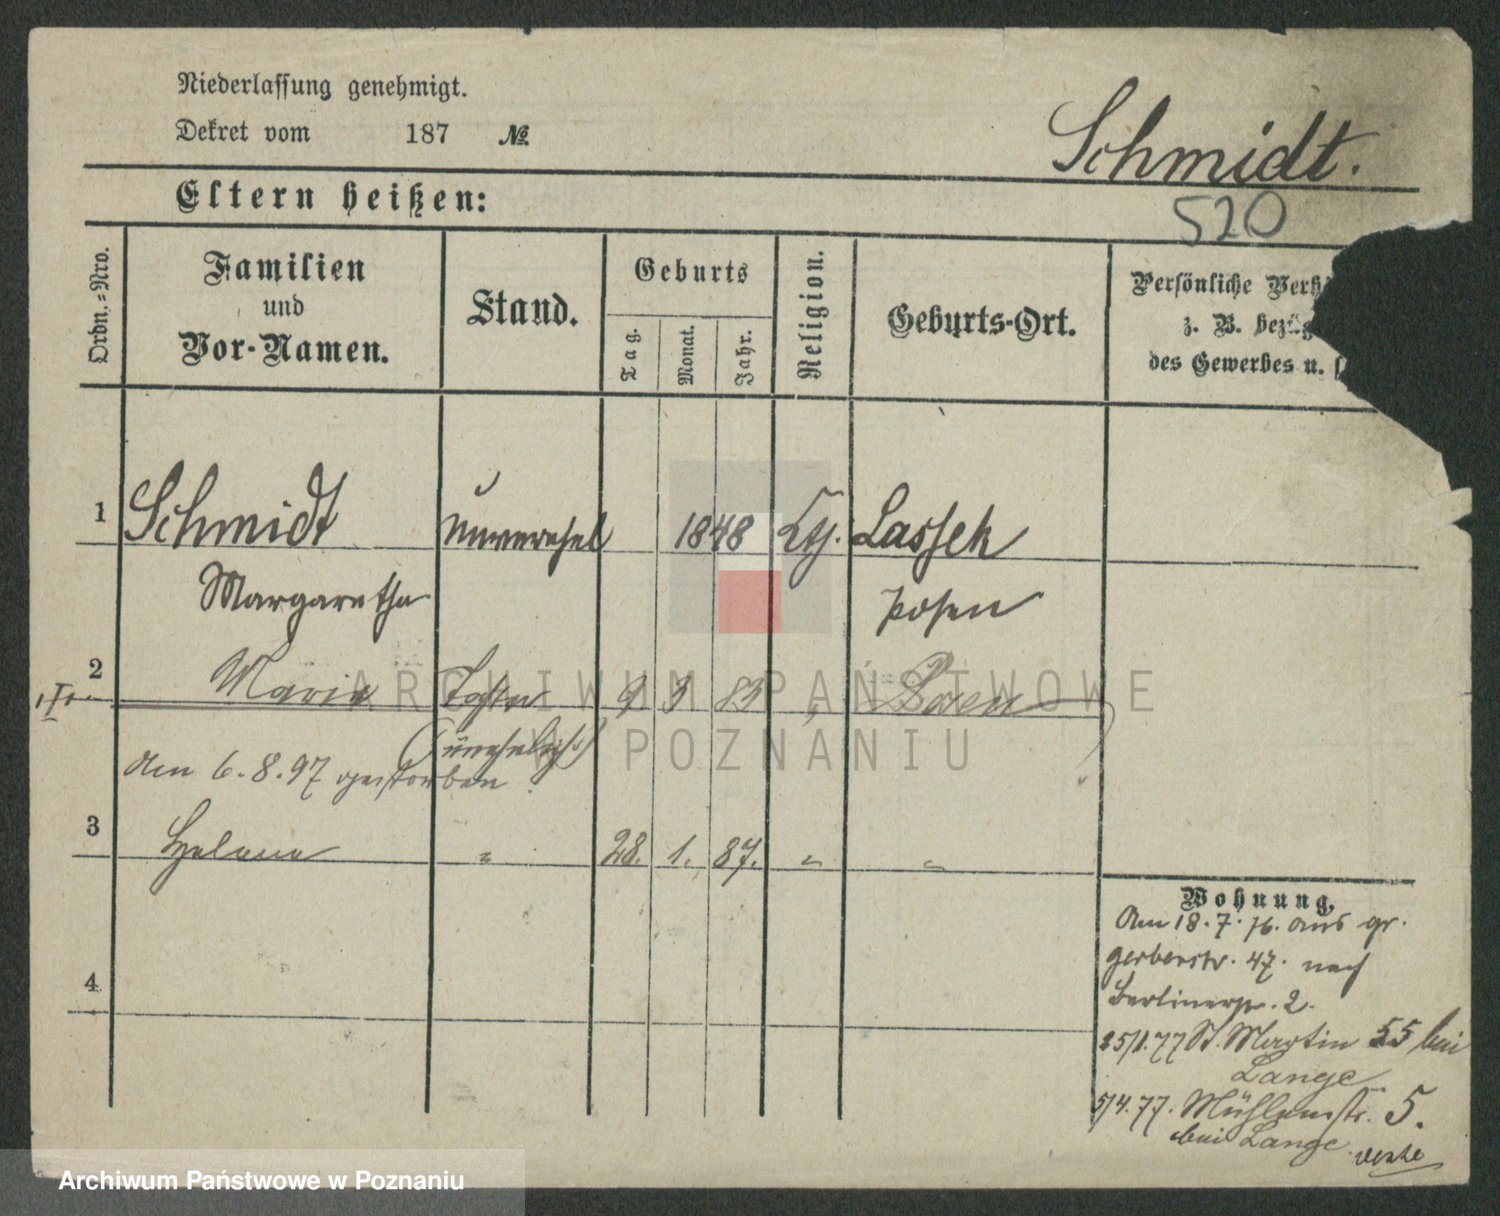 Niederlassung genehmigt.
Dekret vom 187 №
Schmidt.
Eltern heißen:
520
Ordn.-Nro.
Familien
und
Vor-Namen.
Stand.
Geburts
Tag.
Monat.
Jahr.
Religion.
Geburts-Ort.
Persönliche
z. B.
des Gewerbes u.
1 Schmidt unverehel 1848 Lassek
Margaretha Posen
2 Maria Tochter 9 3 83 Posen
(unehelich)
den 6.8.97 gestorben
3 Helene " 28. 1. 87. " "
4
Wohnung.
Am 18.7.76. aus gr.
gerberstr. 47. nach
Berlinerstr. 2.
25/1.77 St. Martin 55 bei
Lange
5/4.77. Mühlenstr. 5.
bei Lange.
ARCHIWUM PAŃSTWOWE
W POZNANIU
Archiwum Państwowe w Poznaniu